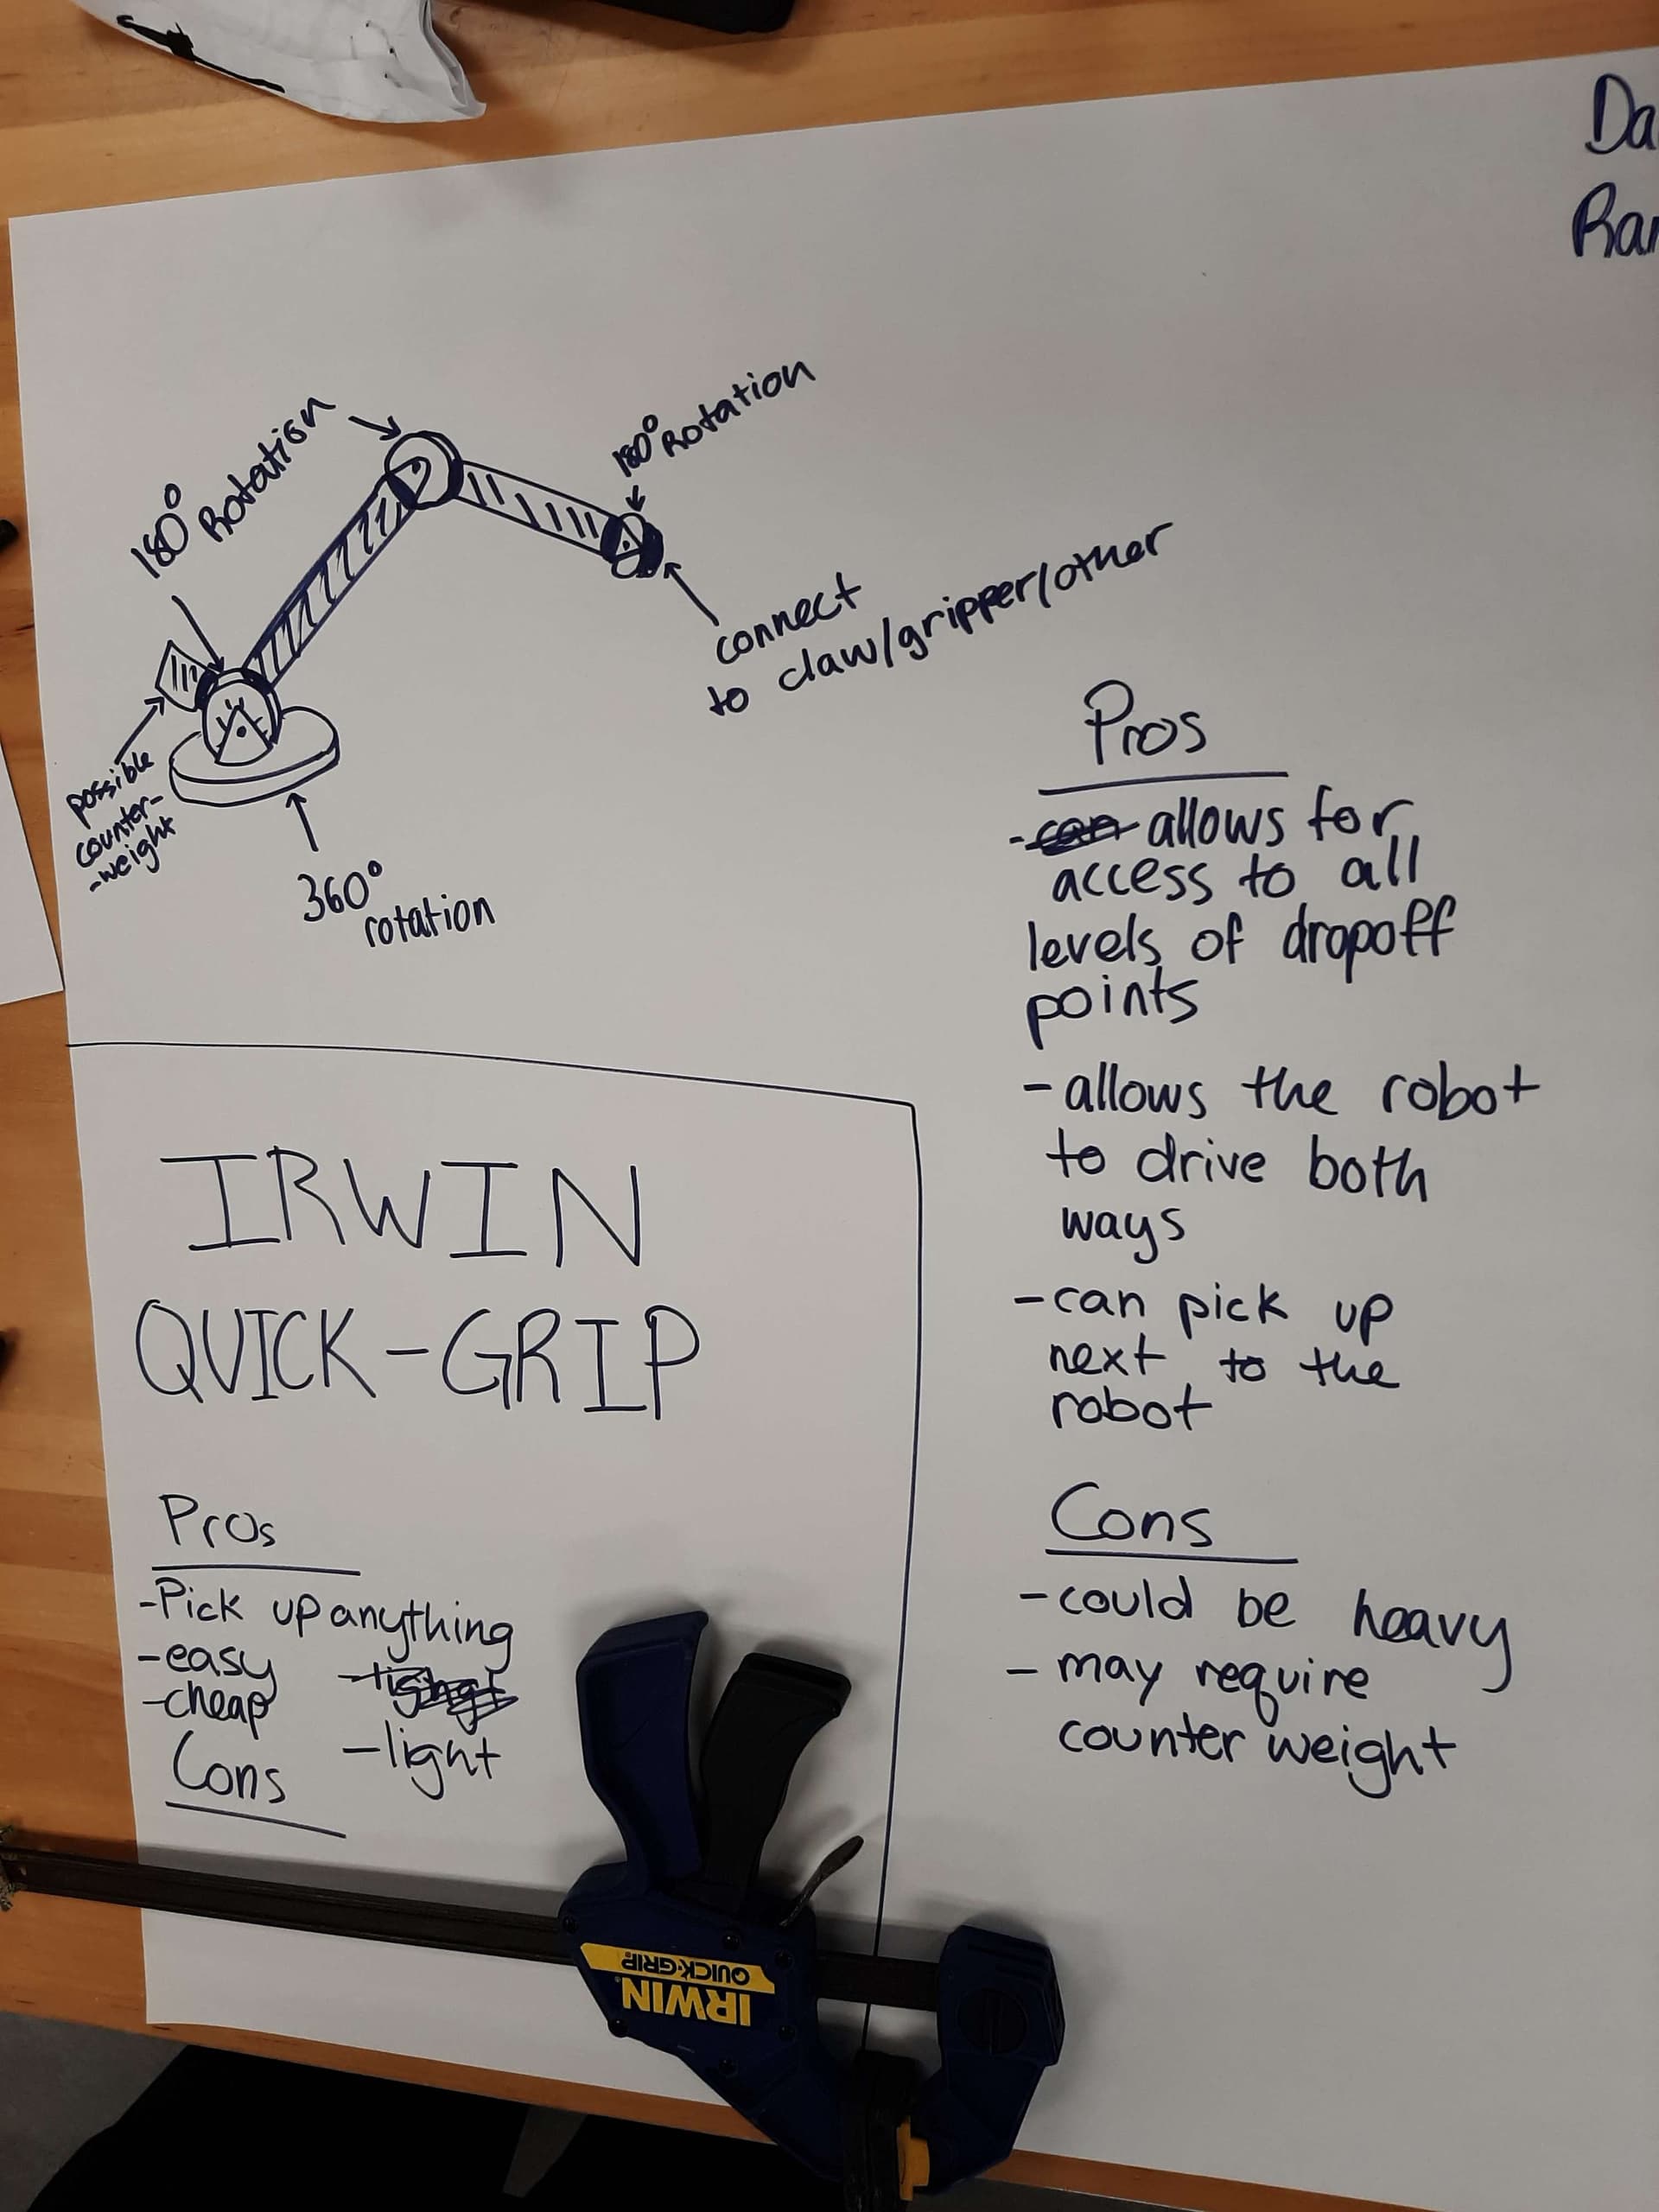 Da
Ran
180° Rotation
180° Rotation
connect
to claw/gripper/other
possible
counter-
-weight
360°
rotation
Pros
- allows for
access to all
levels of dropoff
points
- allows the robot
to drive both
ways
- can pick up
next to the
robot
Cons
- could be heavy
- may require
counter weight
IRWIN
QUICK-GRIP
Pros
- Pick up anything
- easy
- cheap
- light
Cons
IRWIN
QUICK-GRIP